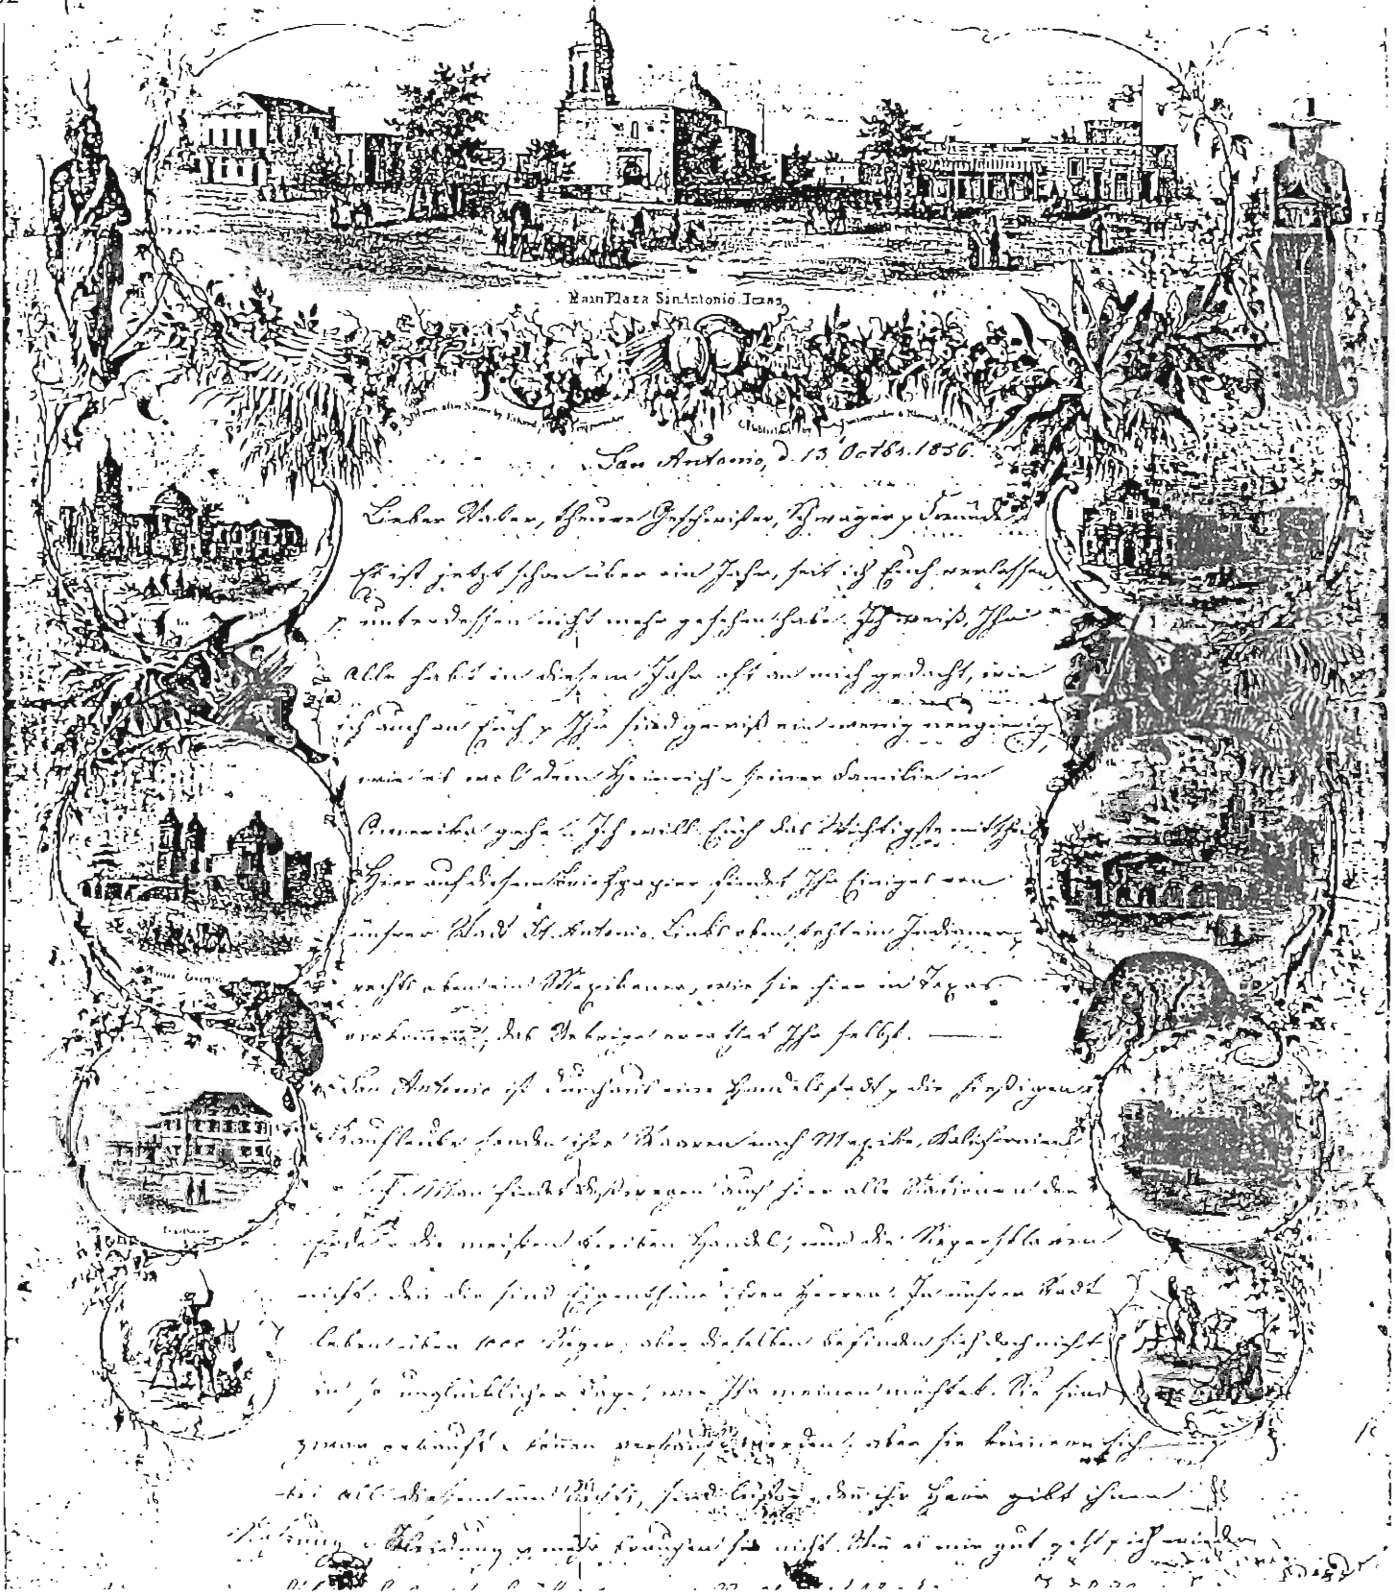 Main Plaza San Antonio. Texas
San Antonio, d. 13 Octbr. 1856.
Lieber Vater, theure Geschwister, Schwäger & Freunde
Es ist jetzt schon über ein Jahr, seit ich Euch verlassen
& unterdessen nicht mehr gesehen habe. Ich weiß, Ihr
alle habt in diesem Jahr oft an mich gedacht, wie
ich auch an Euch & Ihr seid gewiß ein wenig neugierig,
wie es wol dem Heinrich & seiner Familie in
Amerika gehe. Ich will Euch das Wichtigste
Hier auf diesem Briefpapier findet Ihr Einiges von
unsrer Stadt St. Antonio. Links oben steht ein Indianer,
rechts oben ein Mexikaner, wie sie hier in Texas
vorkommen, das Uebrige errathet Ihr selbst. —
San Antonio ist durchaus eine Handelsstadt & die hiesigen
Kaufleute senden ihre Waaren nach Mexiko, Kalifornien
Man findet deßwegen auch hier alle Nationen der
Erde & die meisten treiben Handel, nur die Negersklaven
nicht, den die sind Eigenthum ihrer Herren. In unsrer Stadt
leben über 1000 Neger, aber dieselben befinden sich doch nicht
in so unglücklicher Lage, wie Ihr meinen möchtet. Sie sind
zwar gekauft & können verkauft werden, aber sie kümmern sich
bei all diesem um nichts, sind lustig, den ihr Herr gibt ihnen
Nahrung & Kleidung & mehr brauchen sie nicht. Wie es mir gut geht